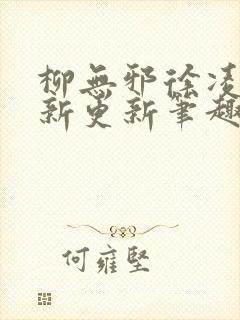 柳無邪徐凌
新更新筆趣
何雍堅